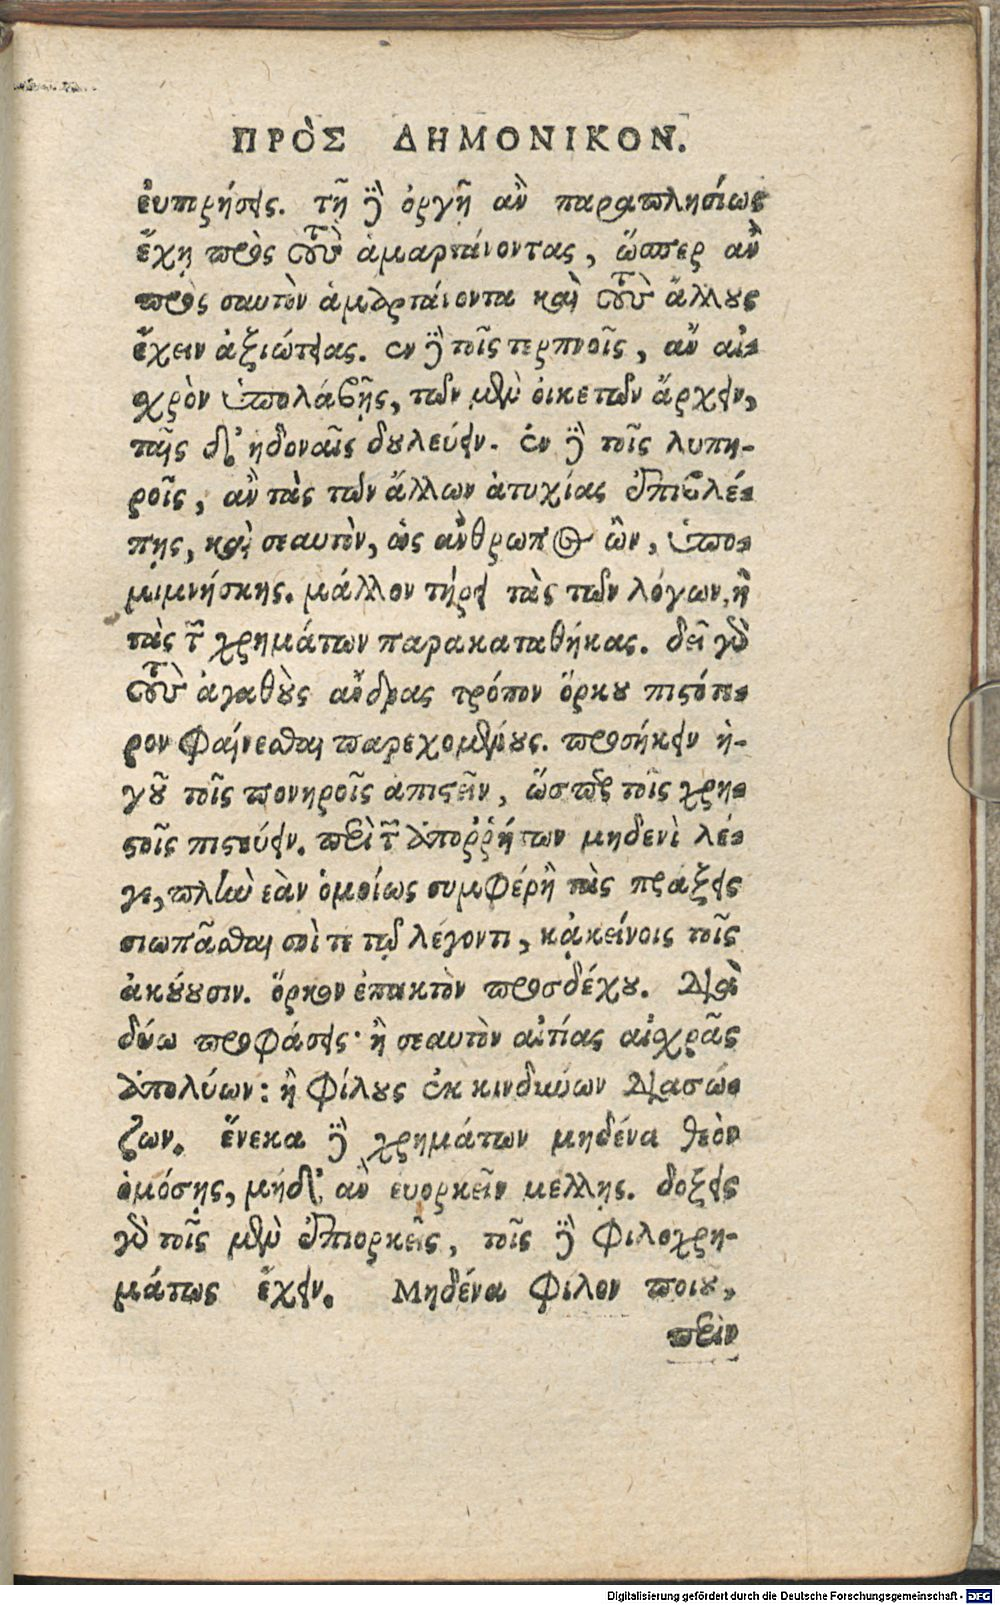 ΠΡῸΣ ΔΗΜΟΝΙΚΟΝ.
ἐυπορήσεις. τῇ δὲ ὀργῇ ἂν παραπλησίως
ἔχῃ πρὸς τοὺς ἁμαρτάνοντας, ὥσπερ ἂν
πρὸς σαυτὸν ἁμαρτάνοντα καὶ τοὺς ἄλλους
ἔχειν ἀξιώσειας. ἐν δὲ τοῖς τερπνοῖς, ἂν αἰ-
χρὸν ὑπολάβῃς, τῶν μὲν οἰκετῶν ἄρχειν,
ταῖς δ' ἡδοναῖς δουλεύειν. ἐν δὲ τοῖς λυπη-
ροῖς, ἂν τὰς τῶν ἄλλων ἀτυχίας ἐπιβλέ-
πῃς, καὶ σεαυτὸν, ὡς ἄνθρωπος ὢν, ὑπο-
μιμνήσκῃς. μάλλον τήρει τὰς τῶν λόγων, ἢ
τὰς τῶν χρημάτων παρακαταθήκας. δεῖ γὰρ
τοὺς ἀγαθοὺς ἄνδρας τρόπον ὅρκου πιστότε-
ρον φαίνεσθαι παρεχομένους. προσήκειν ἡ-
γοῦ τοῖς πονηροῖς ἀπιστεῖν, ὥσπερ τοῖς χρη-
στοῖς πιστεύειν. περὶ τῶν ἀποῤῥήτων μηδενὶ λέ-
γε, πλὴν ἐὰν ὁμοίως συμφέρῃ τὰς πράξεις
σιωπᾶσθαι σοί τε τῷ λέγοντι, κᾀκείνοις τοῖς
ἀκούουσιν. ὅρκον ἐπακτὸν προσδέχου. διὰ
δύω προφάσεις· ἢ σεαυτὸν αἰτίας αἰσχρᾶς
ἀπολύων: ἢ φίλους ἐκ κινδύνων διασώ-
ζων. ἕνεκα δὲ χρημάτων μηδένα θεὸν
ὀμόσῃς, μήδ' ἂν ευορκεῖν μελλῃς. δοξεις
γὰρ τοῖς μὲν ἐπιορκεῖς, τοῖς δὲ φιλοχρη-
μάτως ἔχειν. Μηδένα φιλον ποιου,
πρὶν
Digitalisierung gefördert durch die Deutsche Forschungsgemeinschaft - DFG